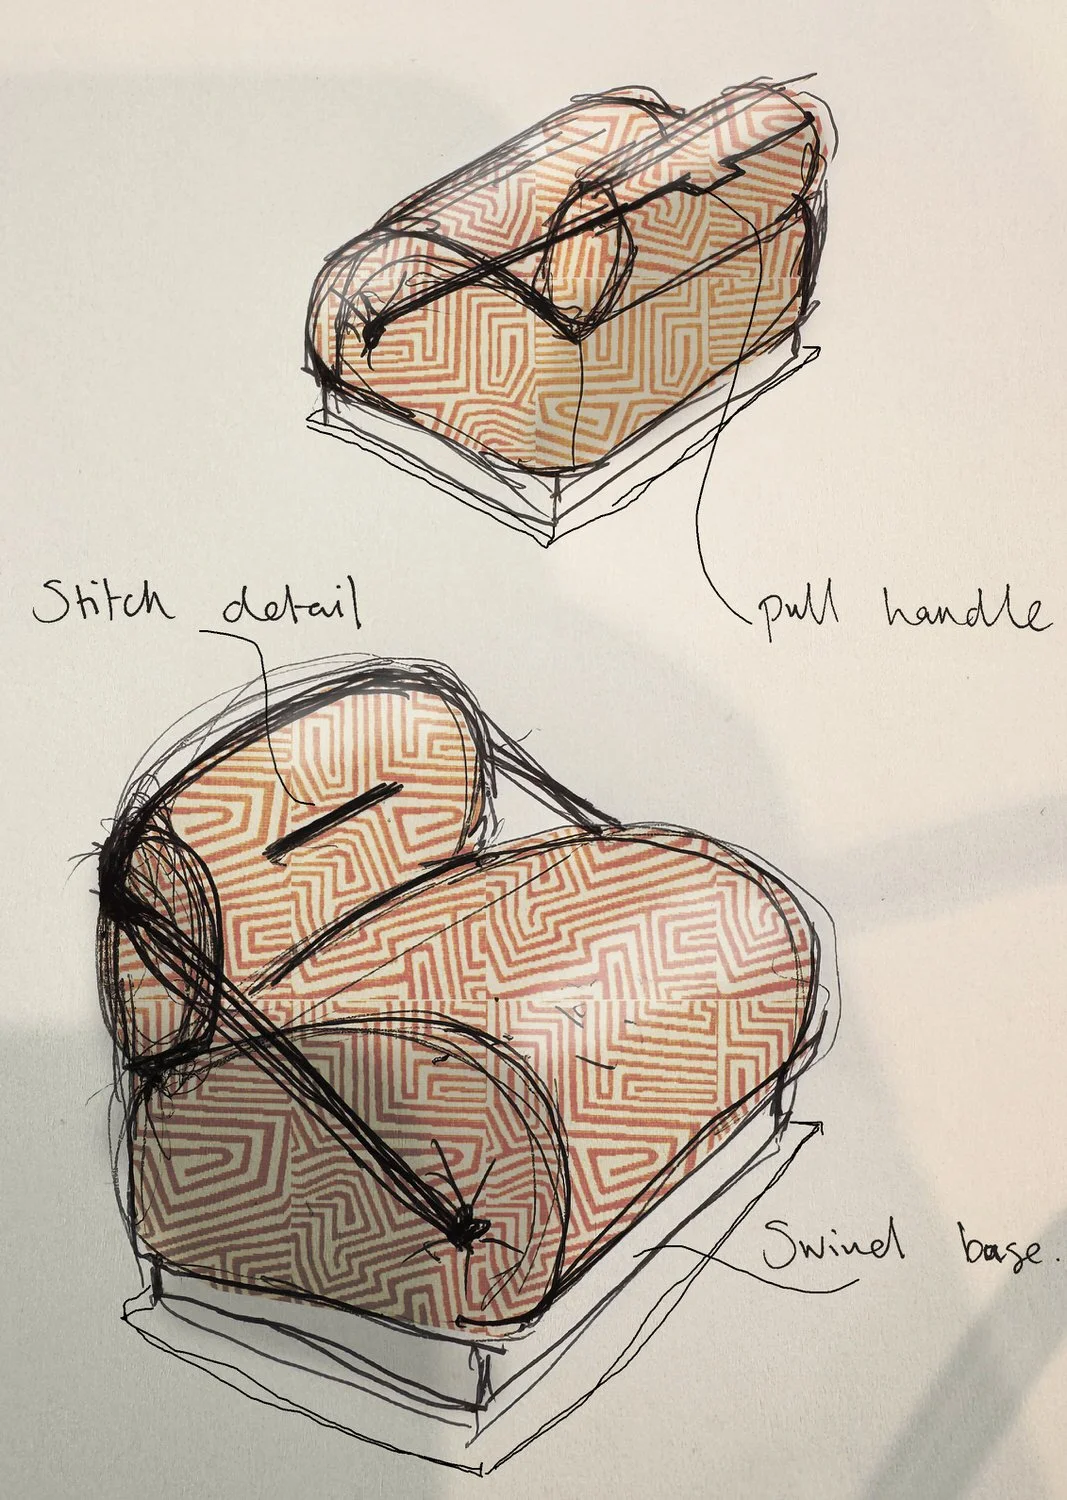 Stitch detail
pull handle
Swivel base.